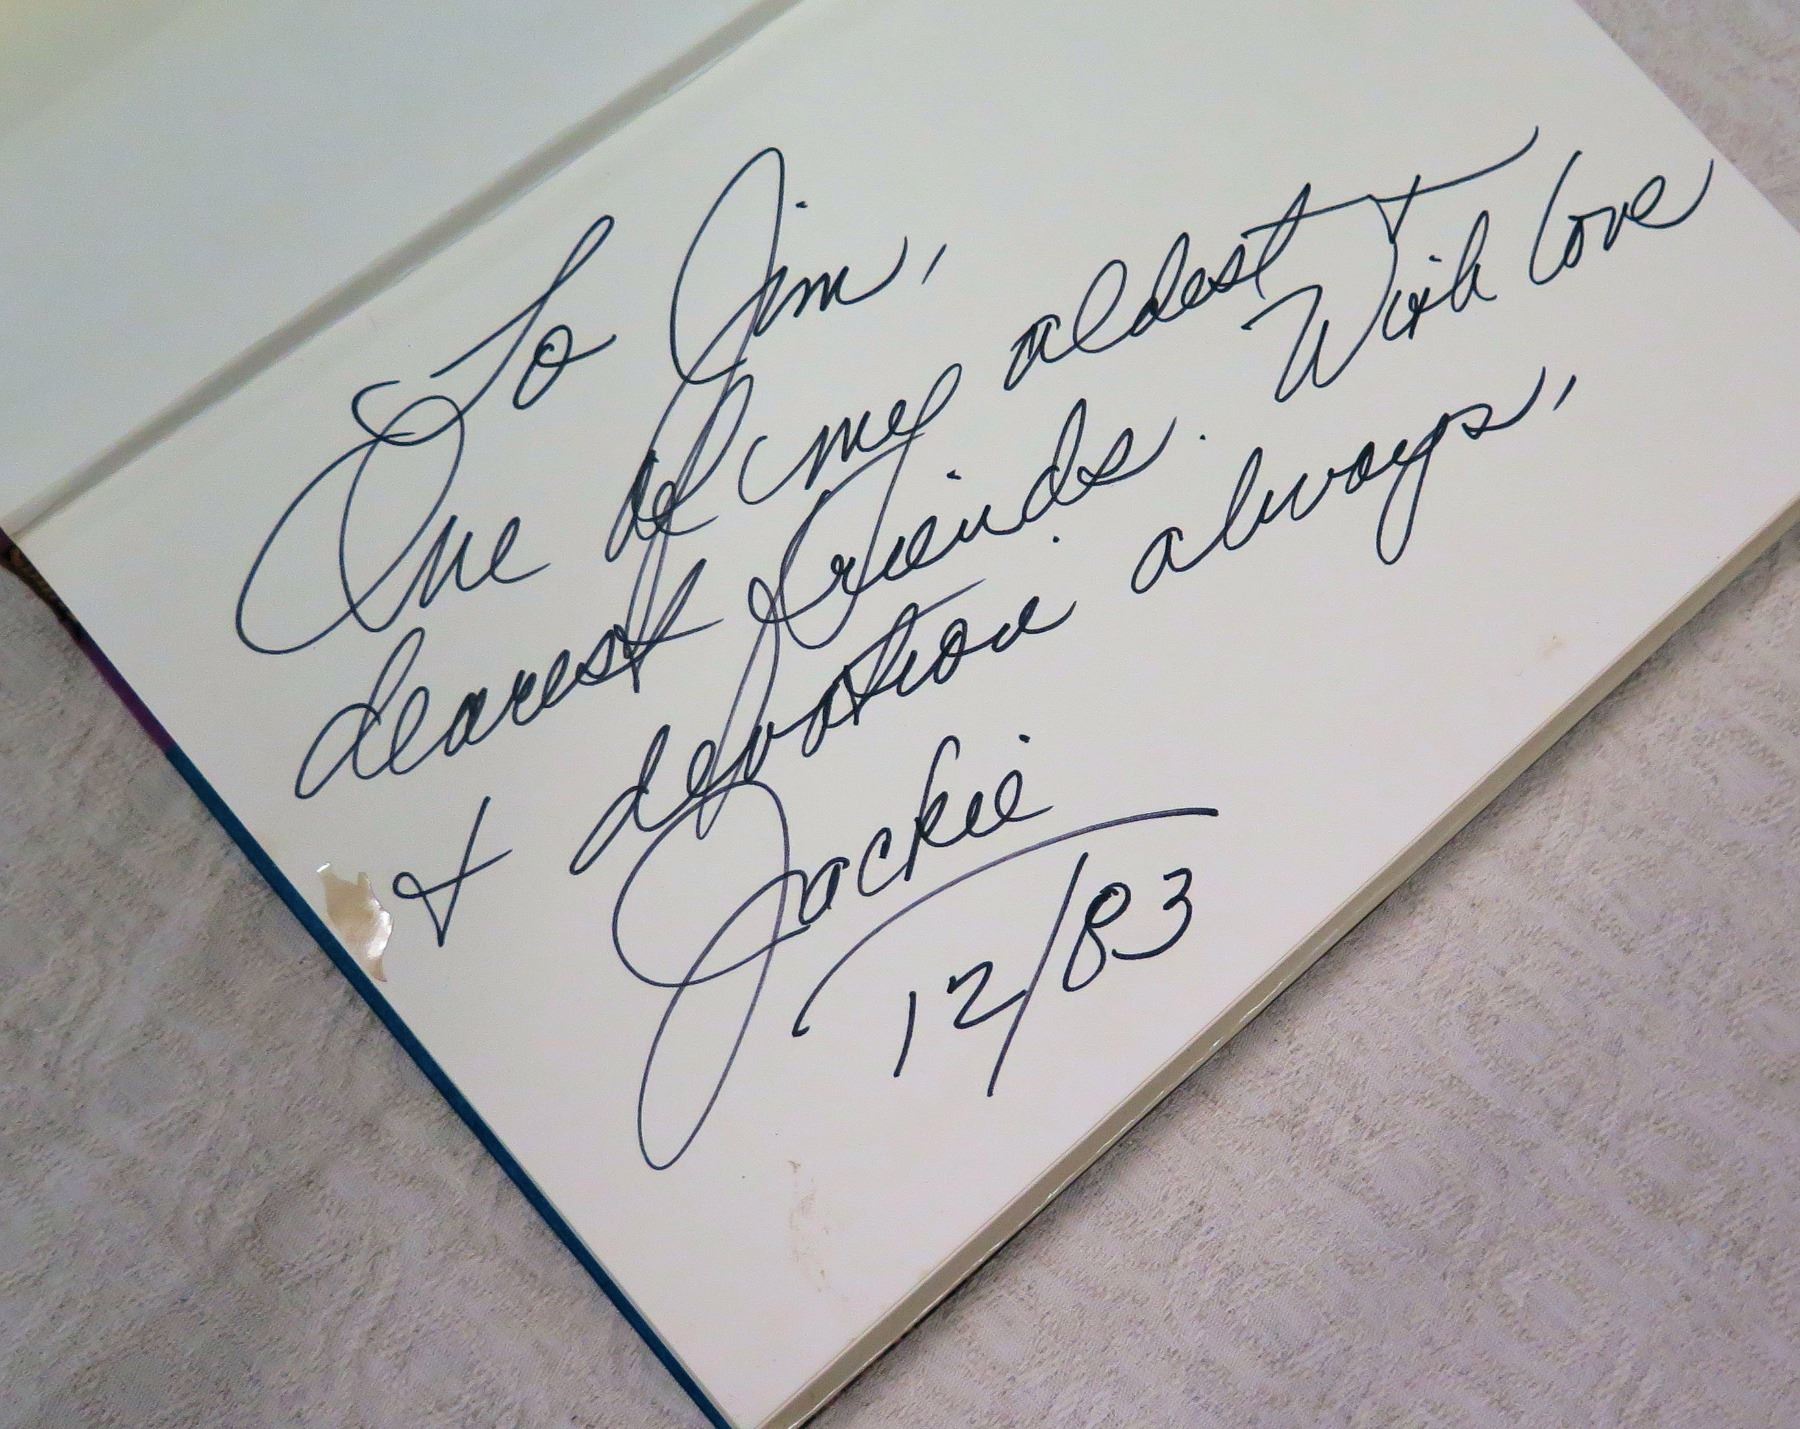 To Jim,
One of my oldest +
dearest friends. With love
+ devotion always,
Jackie
12/83